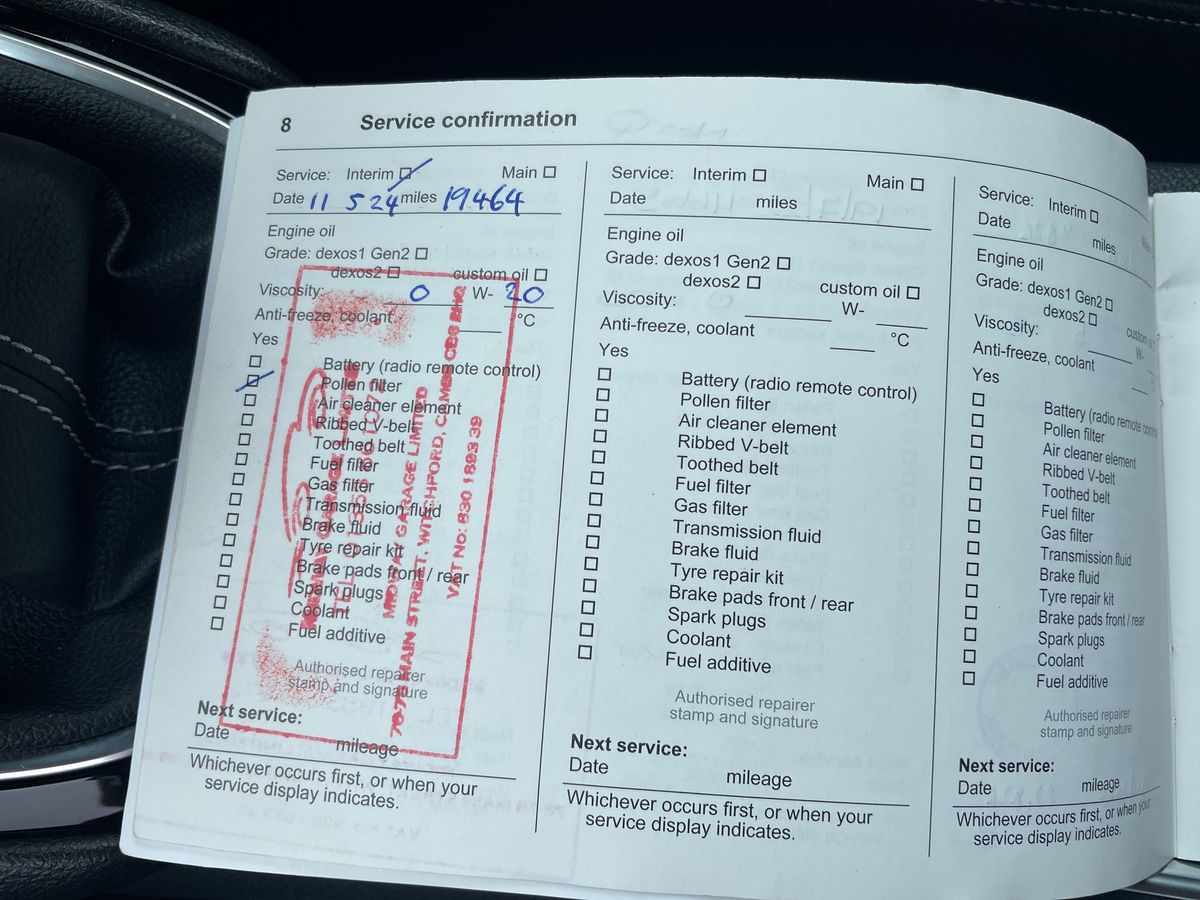 8 Service confirmation
Service: Interim Main
Date 11 5 24 miles 19464
Engine oil
Grade: dexos1 Gen2
dexos2 custom oil
Viscosity: 0 W- 20
Anti-freeze, coolant °C
Yes
Battery (radio remote control)
Pollen filter
Air cleaner element
Ribbed V-belt
Toothed belt
Fuel filter
Gas filter
Transmission fluid
Brake fluid
Tyre repair kit
Brake pads front / rear
Spark plugs
Coolant
Fuel additive
Authorised repairer
stamp and signature
MIDWAY GARAGE LIMITED
70-78 MAIN STREET, WITCHFORD, CAMBS CB6
VAT No: 830 1893 39
Next service:
Date mileage
Whichever occurs first, or when your
service display indicates.
Service: Interim Main
Date miles
Engine oil
Grade: dexos1 Gen2
dexos2 custom oil
Viscosity: W-
Anti-freeze, coolant °C
Yes
Battery (radio remote control)
Pollen filter
Air cleaner element
Ribbed V-belt
Toothed belt
Fuel filter
Gas filter
Transmission fluid
Brake fluid
Tyre repair kit
Brake pads front / rear
Spark plugs
Coolant
Fuel additive
Authorised repairer
stamp and signature
Next service:
Date mileage
Whichever occurs first, or when your
service display indicates.
Service: Interim
Date miles
Engine oil
Grade: dexos1 Gen2
dexos2 custom
Viscosity: W-
Anti-freeze, coolant
Yes
Battery (radio remote
Pollen filter
Air cleaner element
Ribbed V-belt
Toothed belt
Fuel filter
Gas filter
Transmission fluid
Brake fluid
Tyre repair kit
Brake pads front / rear
Spark plugs
Coolant
Fuel additive
Authorised repairer
stamp and signature
Next service:
Date mileage
Whichever occurs first, or when your
service display indicates.